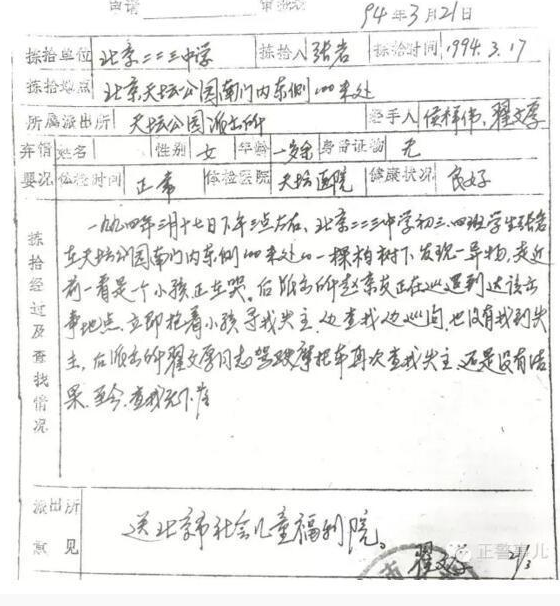 申请 审批表
94年3月21日
拣拾单位 北京二二三中学 拣拾人 张岩 拣拾时间 1994.3.17
拣拾地点 北京天坛公园南门内东侧100米处
所属派出所 天坛公园派出所 经手人 侯祥伟、翟文厚
弃婴情况 姓名 性别 女 年龄 一岁余 身份证物 无
体检时间 正常 体检医院 天坛医院 健康状况 良好
拣拾经过及查找情况
一九九四年三月十七日下午三点左右，北京二二三中学初三.四班学生张岩
在天坛公园南门内东侧100米处的一棵柏树下，发现一异物，走近
前一看是个小孩正在哭。后派出所赵京友正在巡逻到达该出
事地点，立即抱着小孩寻找失主，边查找边巡问，也没有找到失
主，后派出所翟文厚同志驾驶摩托车再次查找失主，还是没有结
果，至今，查找无下落
派出所意见 送北京市社会儿童福利院。
翟文厚 21/3
正警事儿